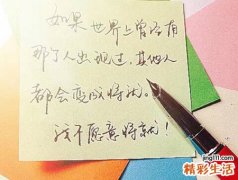 如果世界上曾经有
那个人出现过，其他人
都会变成将就。
我不愿意将就！
jingji111.com
精彩生活